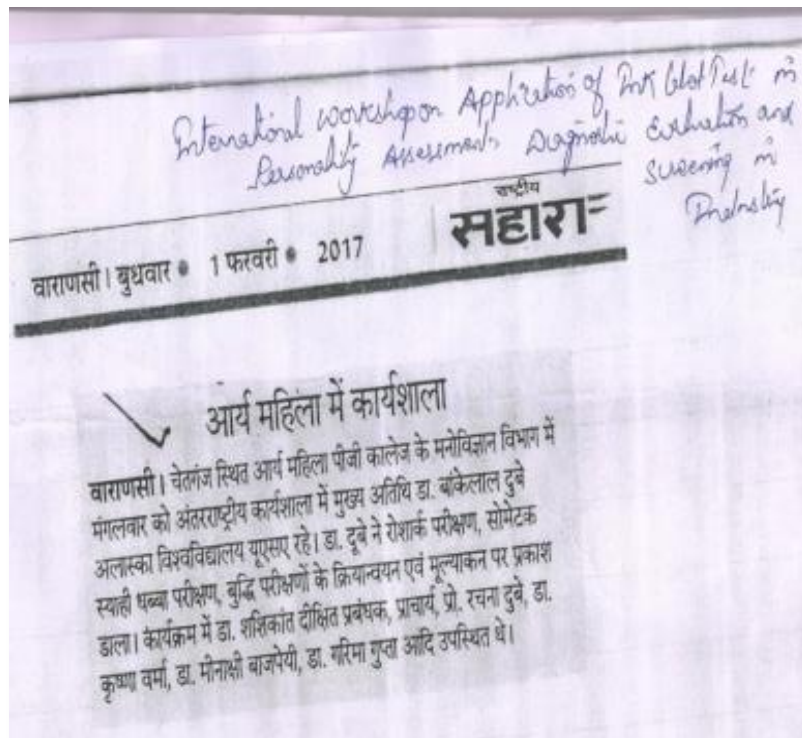 International workshop on Application of Ink blot Test in
Personality Assessment Diagnostic Evaluation and
Screening in
राष्ट्रीय
सहारा
वाराणसी। बुधवार ● 1 फरवरी ● 2017
आर्य महिला में कार्यशाला
वाराणसी। चेतगंज स्थित आर्य महिला पीजी कालेज के मनोविज्ञान विभाग में
मंगलवार को अंतरराष्ट्रीय कार्यशाला में मुख्य अतिथि डा. बांकेलाल दुबे
अलास्का विश्वविद्यालय यूएसए रहे। डा. दूबे ने रोशार्क परीक्षण, सोमेटक
स्याही धब्बा परीक्षण, बुद्धि परीक्षणों के क्रियान्वयन एवं मूल्याकन पर प्रकाश
डाला। कार्यक्रम में डा. शशिकांत दीक्षित प्रबंधक, प्राचार्य, प्रो. रचना दुबे, डा.
कृष्णा वर्मा, डा. मीनाक्षी बाजपेयी, डा. गरिमा गुप्ता आदि उपस्थित थे।